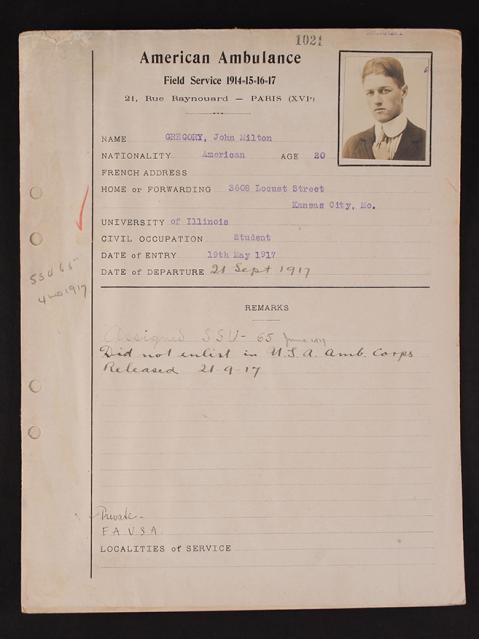 1021
American Ambulance
Field Service 1914-15-16-17
21, Rue Raynouard — PARIS (XVIe)
NAME GREGORY, John Milton
NATIONALITY American AGE 20
FRENCH ADDRESS
HOME or FORWARDING 3608 Locust Street
Kansas City, Mo.
UNIVERSITY of Illinois
CIVIL OCCUPATION Student
DATE of ENTRY 19th May 1917
DATE of DEPARTURE 21 Sept 1917
SSU 65
1917
REMARKS
Assigned SSU- 65 June
Did not enlist in U.S.A. Amb. Corps
Released 21-9-17
Private-
F A U S A
LOCALITIES of SERVICE